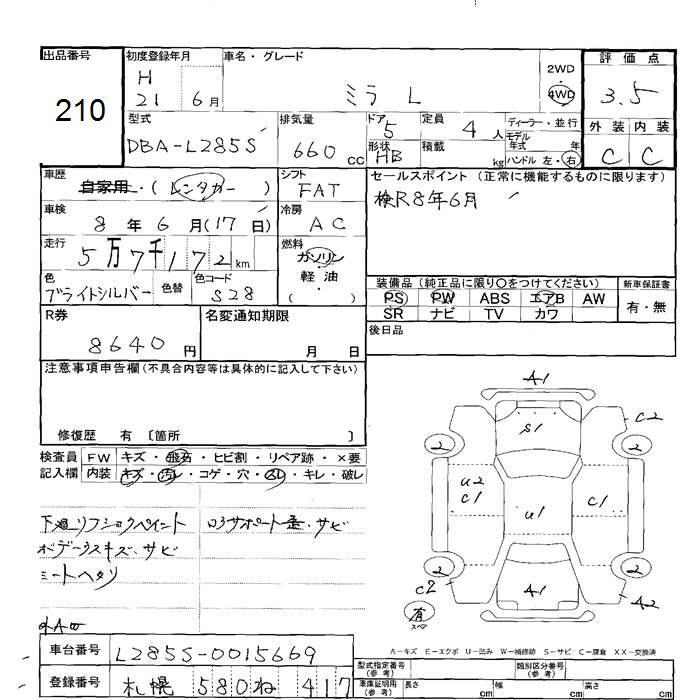 出品番号
210
初度登録年月
H
21 6月
車名・グレード
ミラ L
2WD
・
4WD
評価点
3.5
外装 内装
C C
型式
DBA-L285S
排気量
660 cc
ドア
5
形状
HB
定員
4 人
積載
kg
ディーラー・並行
モデル
年式 年
ハンドル 左・右
車歴
自家用・(レンタカー)
シフト
FAT
セールスポイント (正常に機能するものに限ります)
検R8年6月
車検
8年6月(17日)
冷房
AC
走行
5万7千172km
燃料
ガソリン
軽油
( )
色
ブライトシルバー
色替
色コード
S28
装備品 (純正品に限り○をつけてください)
PS PW ABS エアB AW
SR ナビ TV カワ
新車保証書
有・無
R券
8640円
名変通知期限
月 日
後日品
注意事項申告欄(不具合内容等は具体的に記入して下さい)
修復歴 有 〔箇所 〕
検査員
記入欄
FW キズ・飛石・ヒビ割・リペア跡・×要
内装 キズ・汚れ・コゲ・穴・スレ・キレ・破レ
下廻リフショクペイント
ボデークスキズ、サビ
ミートヘタリ
ロアサポート歪、サビ
外Aω
A1
S1
C2
2
2
U2
C1
U1
C1
2
2
C2
A1
A2
有
スペア
A-キズ E-エクボ U-凹み W-補修跡 S-サビ C-腐食 XX-交換済
車台番号
L285S-0015669
登録番号
札幌 580 ね 417
型式指定番号
(参考)
類別区分番号
(参考)
車庫証明用
(参考)
長さ cm
幅 cm
高さ cm